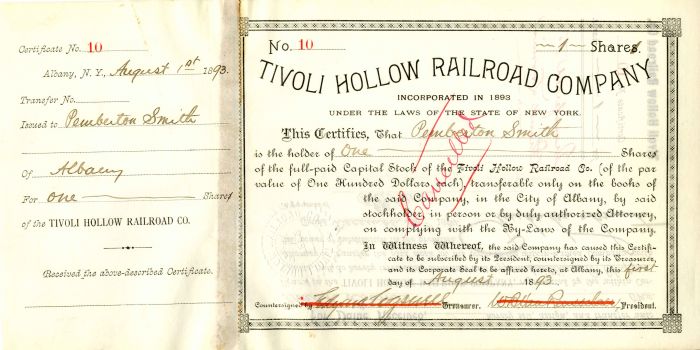 Certificate No. 10
Albany, N. Y., August 1st 1893.
Transfer No.
Issued to Pemberton Smith
Of Albany
For one Share
of the TIVOLI HOLLOW RAILROAD CO.
Received the above-described Certificate.
No. 10
1 Share
TIVOLI HOLLOW RAILROAD COMPANY
INCORPORATED IN 1893
UNDER THE LAWS OF THE STATE OF NEW YORK.
This Certifies, That Pemberton Smith
is the holder of One Shares
of the full-paid Capital Stock of the Tivoli Hollow Railroad Co. (of the par
value of One Hundred Dollars each) transferable only on the books of
the said Company, in the City of Albany, by said
stockholder, in person or by duly authorized Attorney,
on complying with the By-Laws of the Company.
In Witness Whereof, the said Company has caused this Certifi-
cate to be subscribed by its President, countersigned by its Treasurer,
and its Corporate Seal to be affixed hereto, at Albany, this first
day of August 1893.
Countersigned by Treasurer. President.
Cancelled